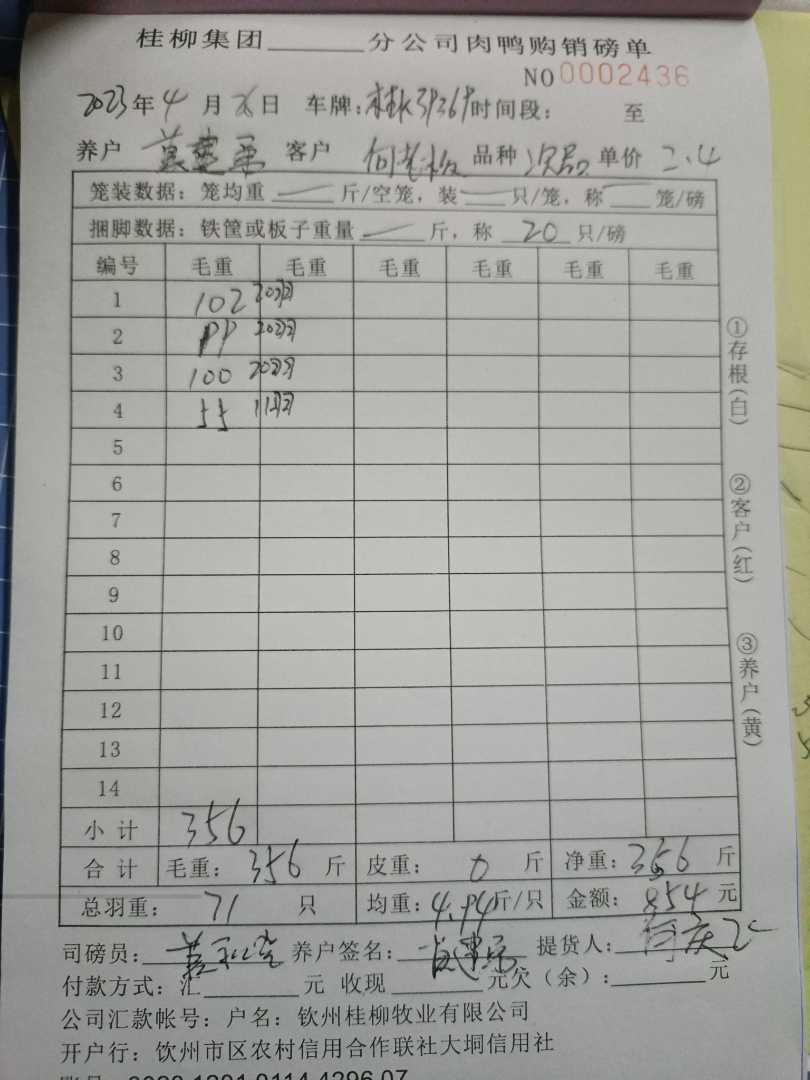 桂柳集团______分公司肉鸭购销磅单
NO 0002436
2023年4月26日 车牌: 时间段: 至
养户 客户 何老板 品种 次品 单价 2.4
笼装数据: 笼均重 — 斤/空笼, 装 — 只/笼, 称 — 笼/磅
捆脚数据: 铁筐或板子重量 — 斤, 称 20 只/磅
编号 毛重 毛重 毛重 毛重 毛重 毛重
1 102 20只
2 99 20只
3 100 20只
4 55 11只
5
6
7
8
9
10
11
12
13
14
小计 356
合计 毛重: 356 斤 皮重: 0 斤 净重: 356 斤
总羽重: 71 只 均重: 4.94斤/只 金额: 854 元
司磅员: 养户签名: 提货人:
付款方式: 汇______元 收现______元欠(余):______元
公司汇款帐号: 户名: 钦州桂柳牧业有限公司
开户行: 钦州市区农村信用合作联社大垌信用社
①存根(白)
②客户(红)
③养户(黄)